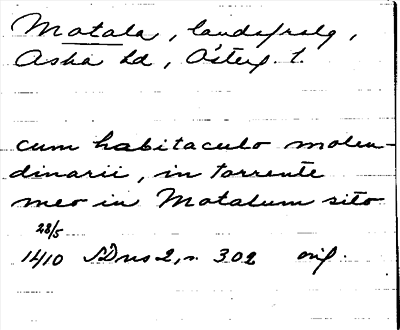 Motala, landsfrslg,
Aska hd, Österg. l.
cum habitaculo molen-
dinarii, in torrente
meo in Motalum sito
28/5
1410 SD ns 2, s. 302 orig.